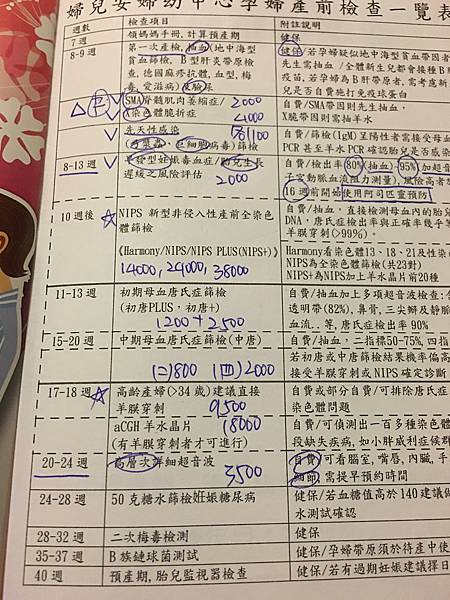 婦兒安婦幼中心孕婦產前檢查一覽表
週數 檢查項目 附註說明
7週 領媽媽手冊,計算預產期 健保
8-9週 第一次產檢,抽血(地中海型 健保/若孕婦疑似地中海型貧血帶因者
貧血篩檢,B型肝炎帶原檢 先生需抽血/全體新生兒都會接種B
查,德國麻疹抗體,血型,梅 疫苗,若孕婦為B肝帶原者,需考慮新
毒,愛滋病)及驗尿 兒是否自費施打免疫球蛋白
SMA脊髓肌肉萎縮症/ 2000 自費/SMA帶因則先生抽血,
X染色體脆折症 4000 X脆帶因則需抽羊水
先天性感染 1100 自費/篩檢(IgM)呈陽性者需接受母血
(弓漿蟲,巨細胞病毒)篩檢 PCR甚至羊水PCR確認胎兒是否感染
8-13週 早發型妊娠毒血症/胎兒生長 自費/檢出率80%(抽血),95%(加超音
遲緩之風險評估 2000 子宮動脈血流阻力測量),風險高者
16週前開始使用阿司匹靈預防
10週後 NIPS 新型非侵入性產前全染色 自費/抽血,直接檢測母血內的胎兒
體篩檢 DNA,唐氏症檢出率與正確率幾乎等
羊膜穿刺(>99%)。
《Harmony/NIPS/NIPS PLUS(NIPS+)》 Harmony看染色體13、18、21及性染
14000, 24000, 38000 NIPS為全染色體篩檢(共23對)
NIPS+為NIPS加上羊水晶片前20種
11-13週 初期母血唐氏症篩檢 自費/抽血加上多項超音波檢查:
(初唐PLUS,初唐+) 透明帶(82%),鼻骨,三尖瓣及靜脈
1200 + 2500 血流..等,唐氏症檢出率 90%
15-20週 中期母血唐氏症篩檢(中唐) 自費/抽血,二指標50-75%,四指
(二)800 (四)2000 若初唐或中唐篩檢結果機率偏高
接受羊膜穿刺或NIPS確定診斷
17-18週 高齡產婦(>34歲)建議直接 自費或部分自費/可排除唐氏症
羊膜穿刺 9500 染色體問題
aCGH 羊水晶片 18000 自費/可偵測出一百多種染色體
(有羊膜穿刺者才可進行) 段缺失疾病,如小胖威利症候群
20-24週 高層次詳細超音波 自費,可看腦室,嘴唇,內臟,手
3500 細節,需提早預約時間
24-28週 50克糖水篩檢妊娠糖尿病 健保/若血糖值高於140建議做
水測試確認
28-32週 二次梅毒檢測 健保
35-37週 B族鏈球菌測試 健保/孕婦帶原須於待產中使
40週 預產期,胎兒監視器檢查 健保/若有過期妊娠建議擇日